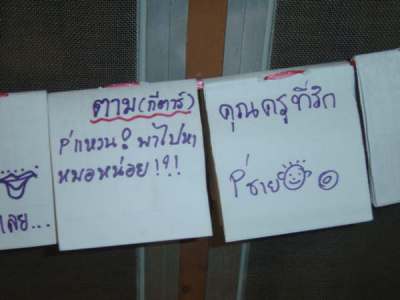 ตาม (กีตาร์)
P'แหวน : พาไปหา
หมอหน่อย !?!
คุณครูที่รัก
P'ชาย
เลย...